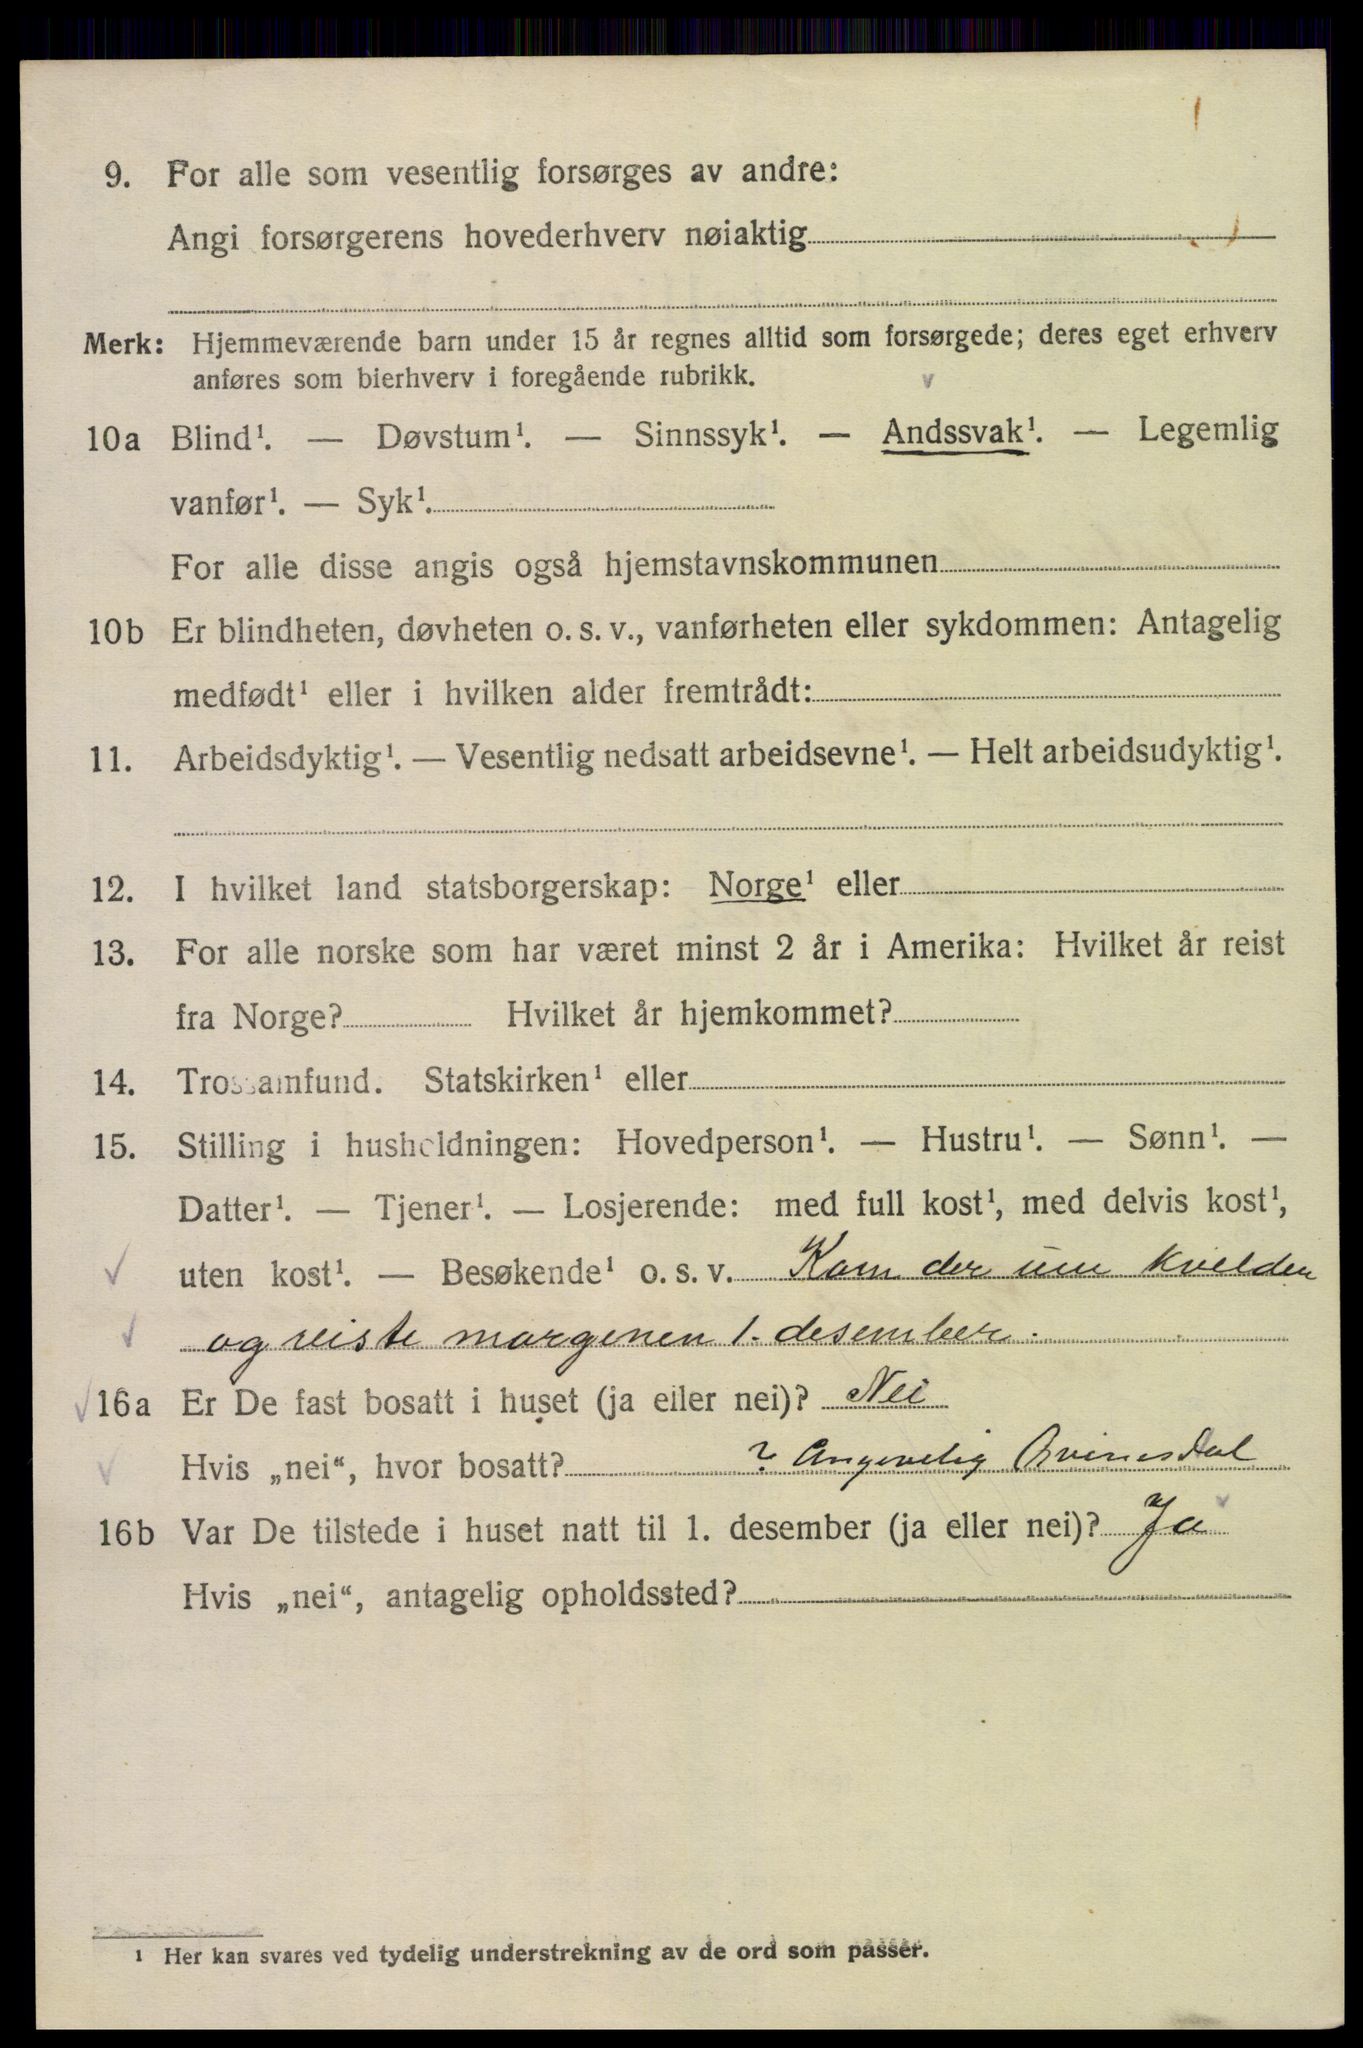 9. For alle som vesentlig forsørges av andre:
Angi forsørgerens hovederhverv nøiaktig
Merk: Hjemmeværende barn under 15 år regnes alltid som forsørgede; deres eget erhverv
anføres som bierhverv i foregående rubrikk.
10a Blind¹. — Døvstum¹. — Sinnssyk¹. — Andssvak¹. — Legemlig
vanfør¹. — Syk¹.
For alle disse angis også hjemstavnskommunen
10b Er blindheten, døvheten o. s. v., vanførheten eller sykdommen: Antagelig
medfødt¹ eller i hvilken alder fremtrådt:
11. Arbeidsdyktig¹. — Vesentlig nedsatt arbeidsevne¹. — Helt arbeidsudyktig¹.
12. I hvilket land statsborgerskap: Norge¹ eller
13. For alle norske som har været minst 2 år i Amerika: Hvilket år reist
fra Norge? Hvilket år hjemkommet?
14. Trossamfund. Statskirken¹ eller
15. Stilling i husholdningen: Hovedperson¹. — Hustru¹. — Sønn¹. —
Datter¹. — Tjener¹. — Losjerende: med full kost¹, med delvis kost¹,
uten kost¹. — Besøkende¹ o. s. v. Kom der um kvelden
og reiste morgenen 1. desember.
16a Er De fast bosatt i huset (ja eller nei)? Nei
Hvis „nei“, hvor bosatt? ? Angevelig Kvinesdal
16b Var De tilstede i huset natt til 1. desember (ja eller nei)? Ja
Hvis „nei“, antagelig opholdssted?
¹ Her kan svares ved tydelig understrekning av de ord som passer.